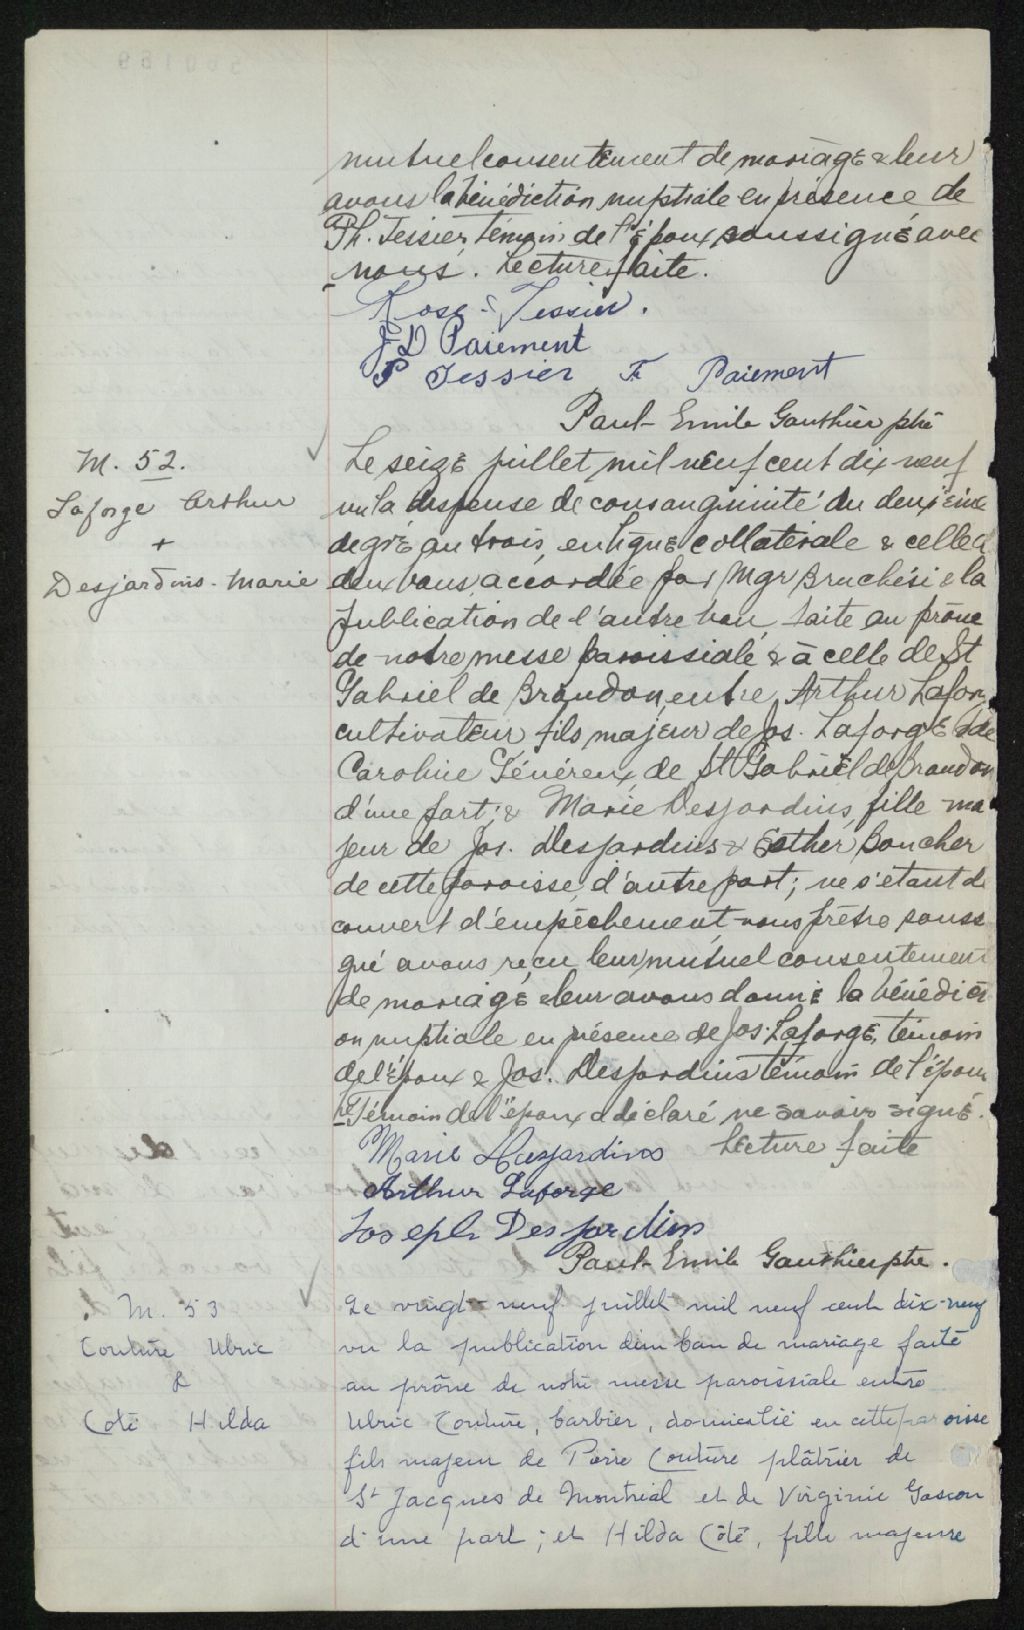 mutuel consentement de mariage & leur
avons la bénédiction nuptiale en présence de
Ph. Tessier témoin de l'époux soussigné avec
nous. Lecture faite.
Rose Tessier.
J D Paiement
P Tessier F Paiement
Paul-Emile Gauthier ptre
M. 52.
Laforge Arthur
+
Desjardins-Marie
Le seize juillet mil neuf cent dix neuf
vu la dispense de consanguinité du deuxième
degré au trois en ligne collatérale & celle d
deux bans accordée par Mgr Bruchési & la
publication de l'autre ban faite au prône
de notre messe paroissiale & à celle de St
Gabriel de Brandon, entre Arthur Lafor
cultivateur fils majeur de Jos. Laforge & de
Caroline Généreux de St Gabriel de Brandon
d'une part; & Marie Desjardins, fille ma
jeur de Jos. Desjardins & Esther Boucher
de cette paroisse, d'autre part; ne s'étant dé
couvert d'empêchement nous prêtre souss
gné avons reçu leur mutuel consentement
de mariage & leur avons donné la bénédicti
on nuptiale en présence de Jos. Laforge, témoin
de l'époux & Jos. Desjardins témoin de l'épouse
Le témoin de l'époux a déclaré ne savoir signé.
Lecture faite
Marie Desjardins
Arthur Laforge
Joseph Desjardins
Paul-Emile Gauthier ptre.
M. 53
Couture Ulric
&
Coté Hilda
Le vingt-neuf juillet mil neuf cent dix-neuf
vu la publication d'un ban de mariage faite
au prône de notre messe paroissiale entre
Ulric Couture, barbier, domicilié en cette paroisse
fils majeur de Pierre Couture plâtrier de
St Jacques de Montréal et de Virginie Gascon
d'une part; et Hilda Côté, fille majeure